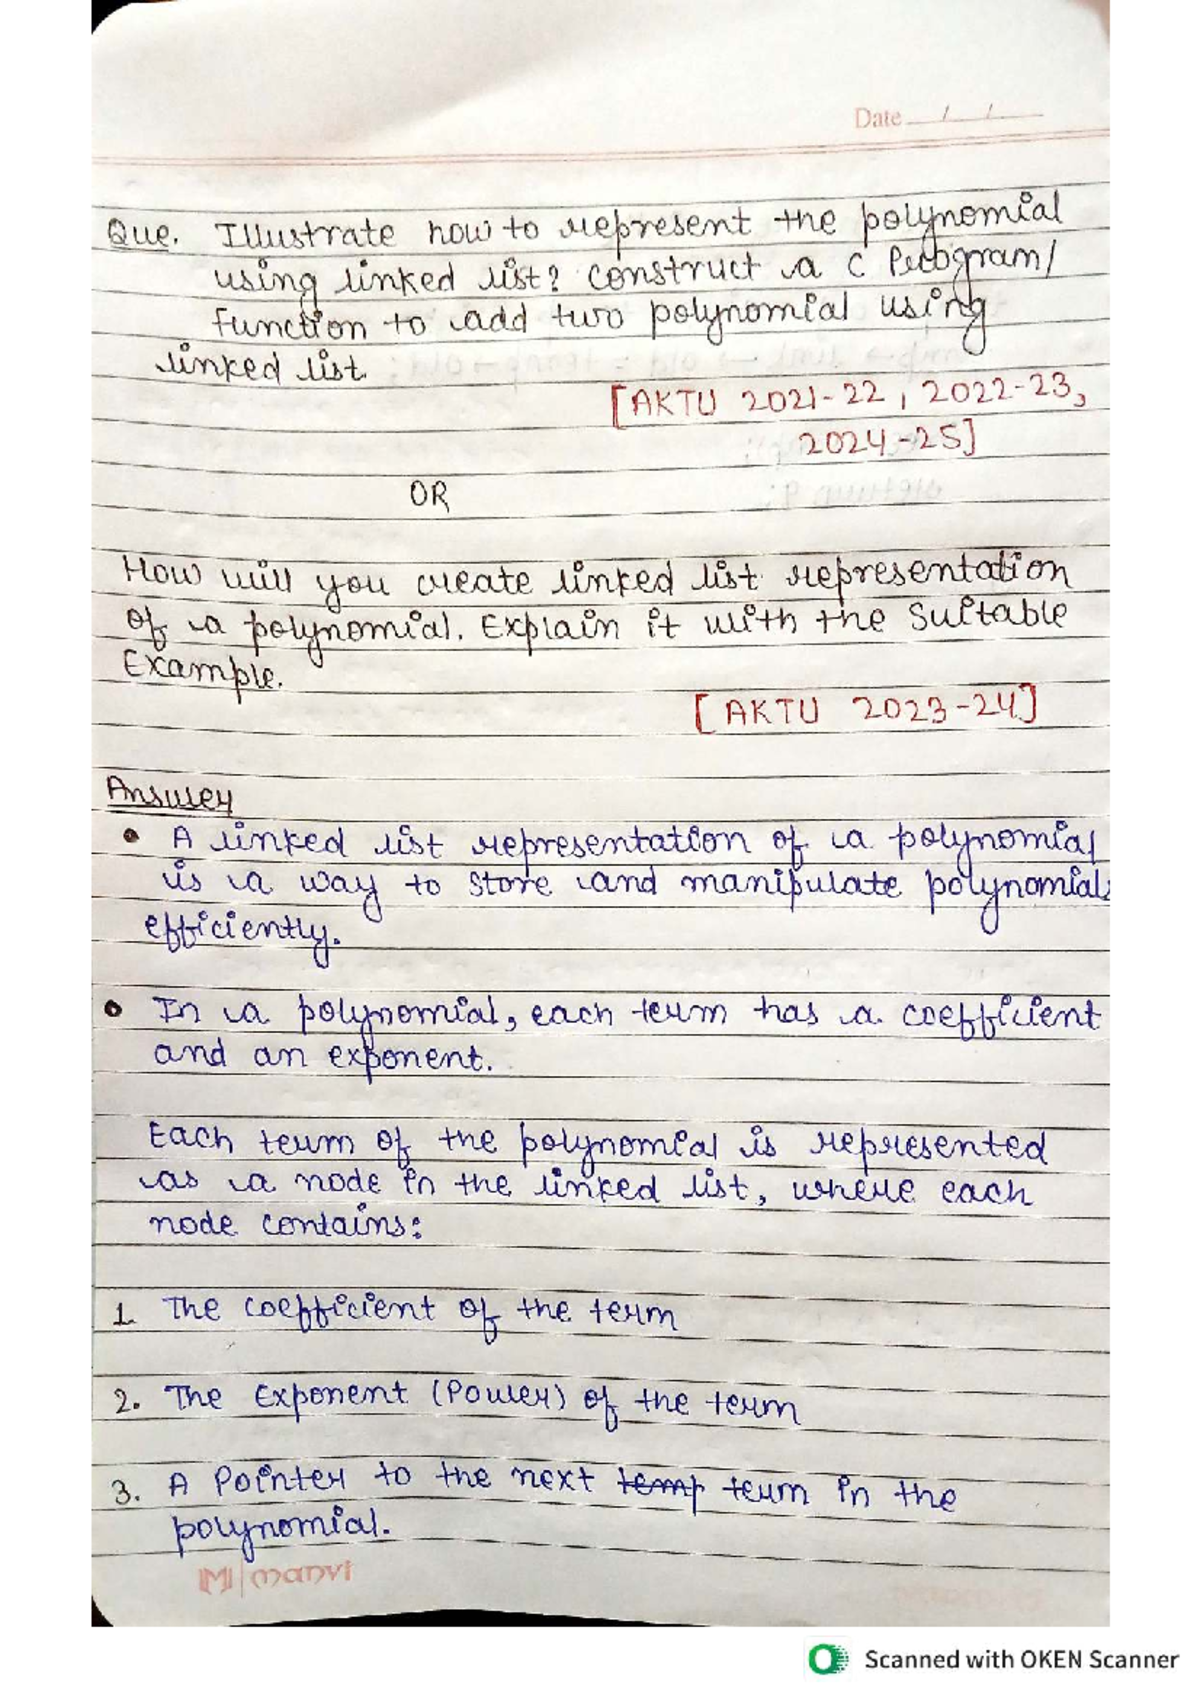 Date / /
Que. Illustrate how to represent the polynomial
using linked list? Construct a C Program/
function to add two polynomial using
linked list.
[AKTU 2021-22, 2022-23,
2024-25]
OR
How will you create linked list representation
of a polynomial. Explain it with the suitable
Example.
[AKTU 2023-24]
Answer
• A linked list representation of a polynomial
is a way to store and manipulate polynomials
efficiently.
• In a polynomial, each term has a coefficient
and an exponent.
Each term of the polynomial is represented
as a node in the linked list, where each
node contains:
1. The coefficient of the term
2. The Exponent (Power) of the term
3. A Pointer to the next temp term in the
polynomial.
M|manvi
Scanned with OKEN Scanner